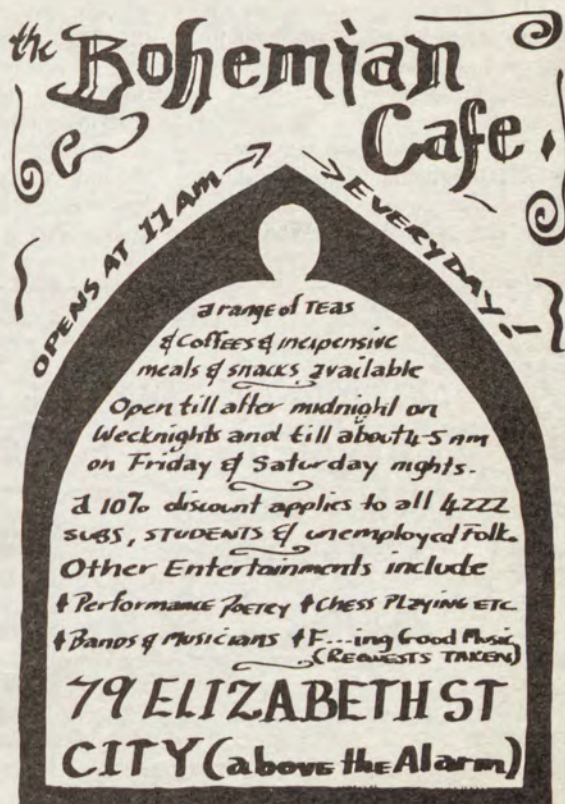 the Bohemian
Cafe
OPENS AT 11AM → → EVERYDAY!
a range of TEAS
& COffEES & inexpensive
meals & snacks available
Open till after midnight on
Weeknights and till about 4-5 am
on Friday & Saturday nights.
a 10% discount applies to all 4ZZZ
SUBS, STUDENTS & unemployed Folk.
Other Entertainments include
Performance POETRY CHESS PLAYING ETC
Bands & Musicians F...ing Good Music
(REQUESTS TAKEN)
79 ELIZABETH ST
CITY (above the Alarm)